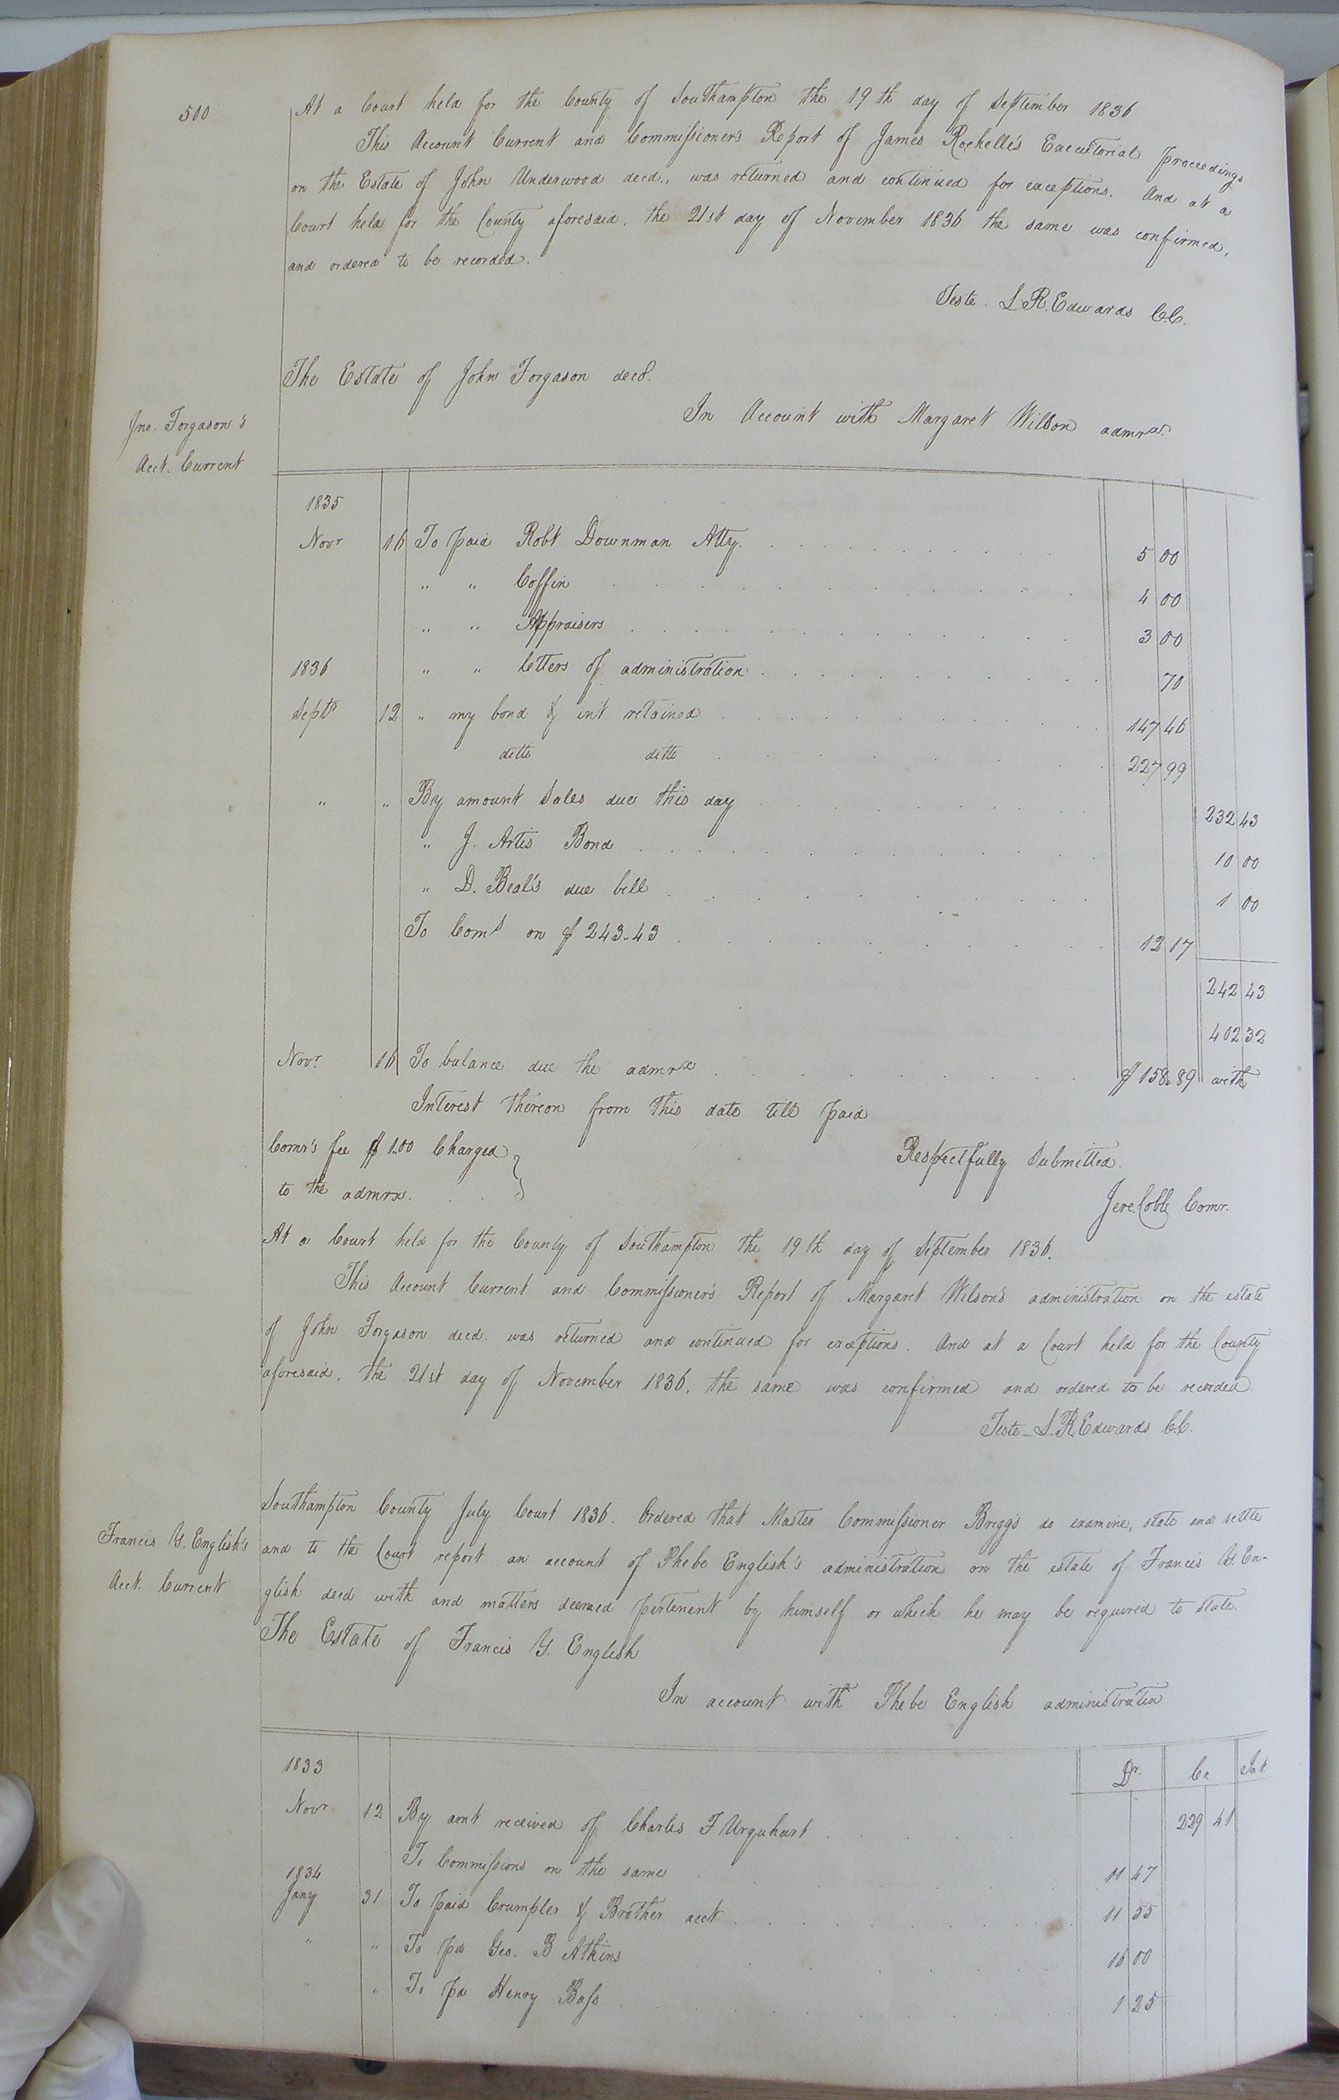 500
At a Court held for the County of Southampton the 19th day of September 1836
This Account Current and Commissioner's Report of James Rochelle's Executorial proceedings
on the Estate of John Underwood decd., was returned and continued for exceptions. And at a
Court held for the County aforesaid, the 21st day of November 1836 the same was confirmed,
and ordered to be recorded.
Teste. L. R. Edwards C.C.
The Estate of John Forgason decd.
Jno. Forgason's
Acct. Current
In Account with Margaret Wilson admrx.
1835
Novr 16 To paid Robt Downman Atty. 5 00
" " Coffin 4 00
" " Appraisers 3 00
1836 " " Letters of administration 70
Septr 12 " my bond & int retained 147 46
ditto ditto 227 99
" " By amount Sales due this day 232 43
" J. Artis Bond 10 00
" D. Beal's due bill 1 00
To Coms on $ 243.43 12 17
242 43
402 32
Novr. 16 To balance due the admrx $158.89 with
Interest thereon from this date till paid
Comr's fee $1.00 Charged
to the admrx.
Respectfully Submitted.
Jere. Cobb Comr.
At a Court held for the County of Southampton the 19th day of September 1836.
This Account Current and Commissioner's Report of Margaret Wilson's administration on the estate
of John Forgason decd. was returned and continued for exceptions. And at a Court held for the County
aforesaid, the 21st day of November 1836, the same was confirmed and ordered to be recorded
Teste_ L. R. Edwards C.C.
Francis Y. English's
Acct. Current
Southampton County July Court 1836. Ordered that Master Commissioner Briggs do examine, state and settle
and to the Court report an account of Phebe English's administration on the estate of Francis Y. En-
glish decd with and matters deemed pertenent by himself or which he may be required to state.
The Estate of Francis Y. English
In account with Phebe English administratrix
1833 Dr. Cr Int.
Novr 12 By amt received of Charles F Urquhart 229 41
To Commissions on the same 11 47
1834
Jany 31 To paid Crumpler & Brother acct 11 55
" " To pd Geo. B Atkins 16 00
" " To pd Henry Bass 1 25